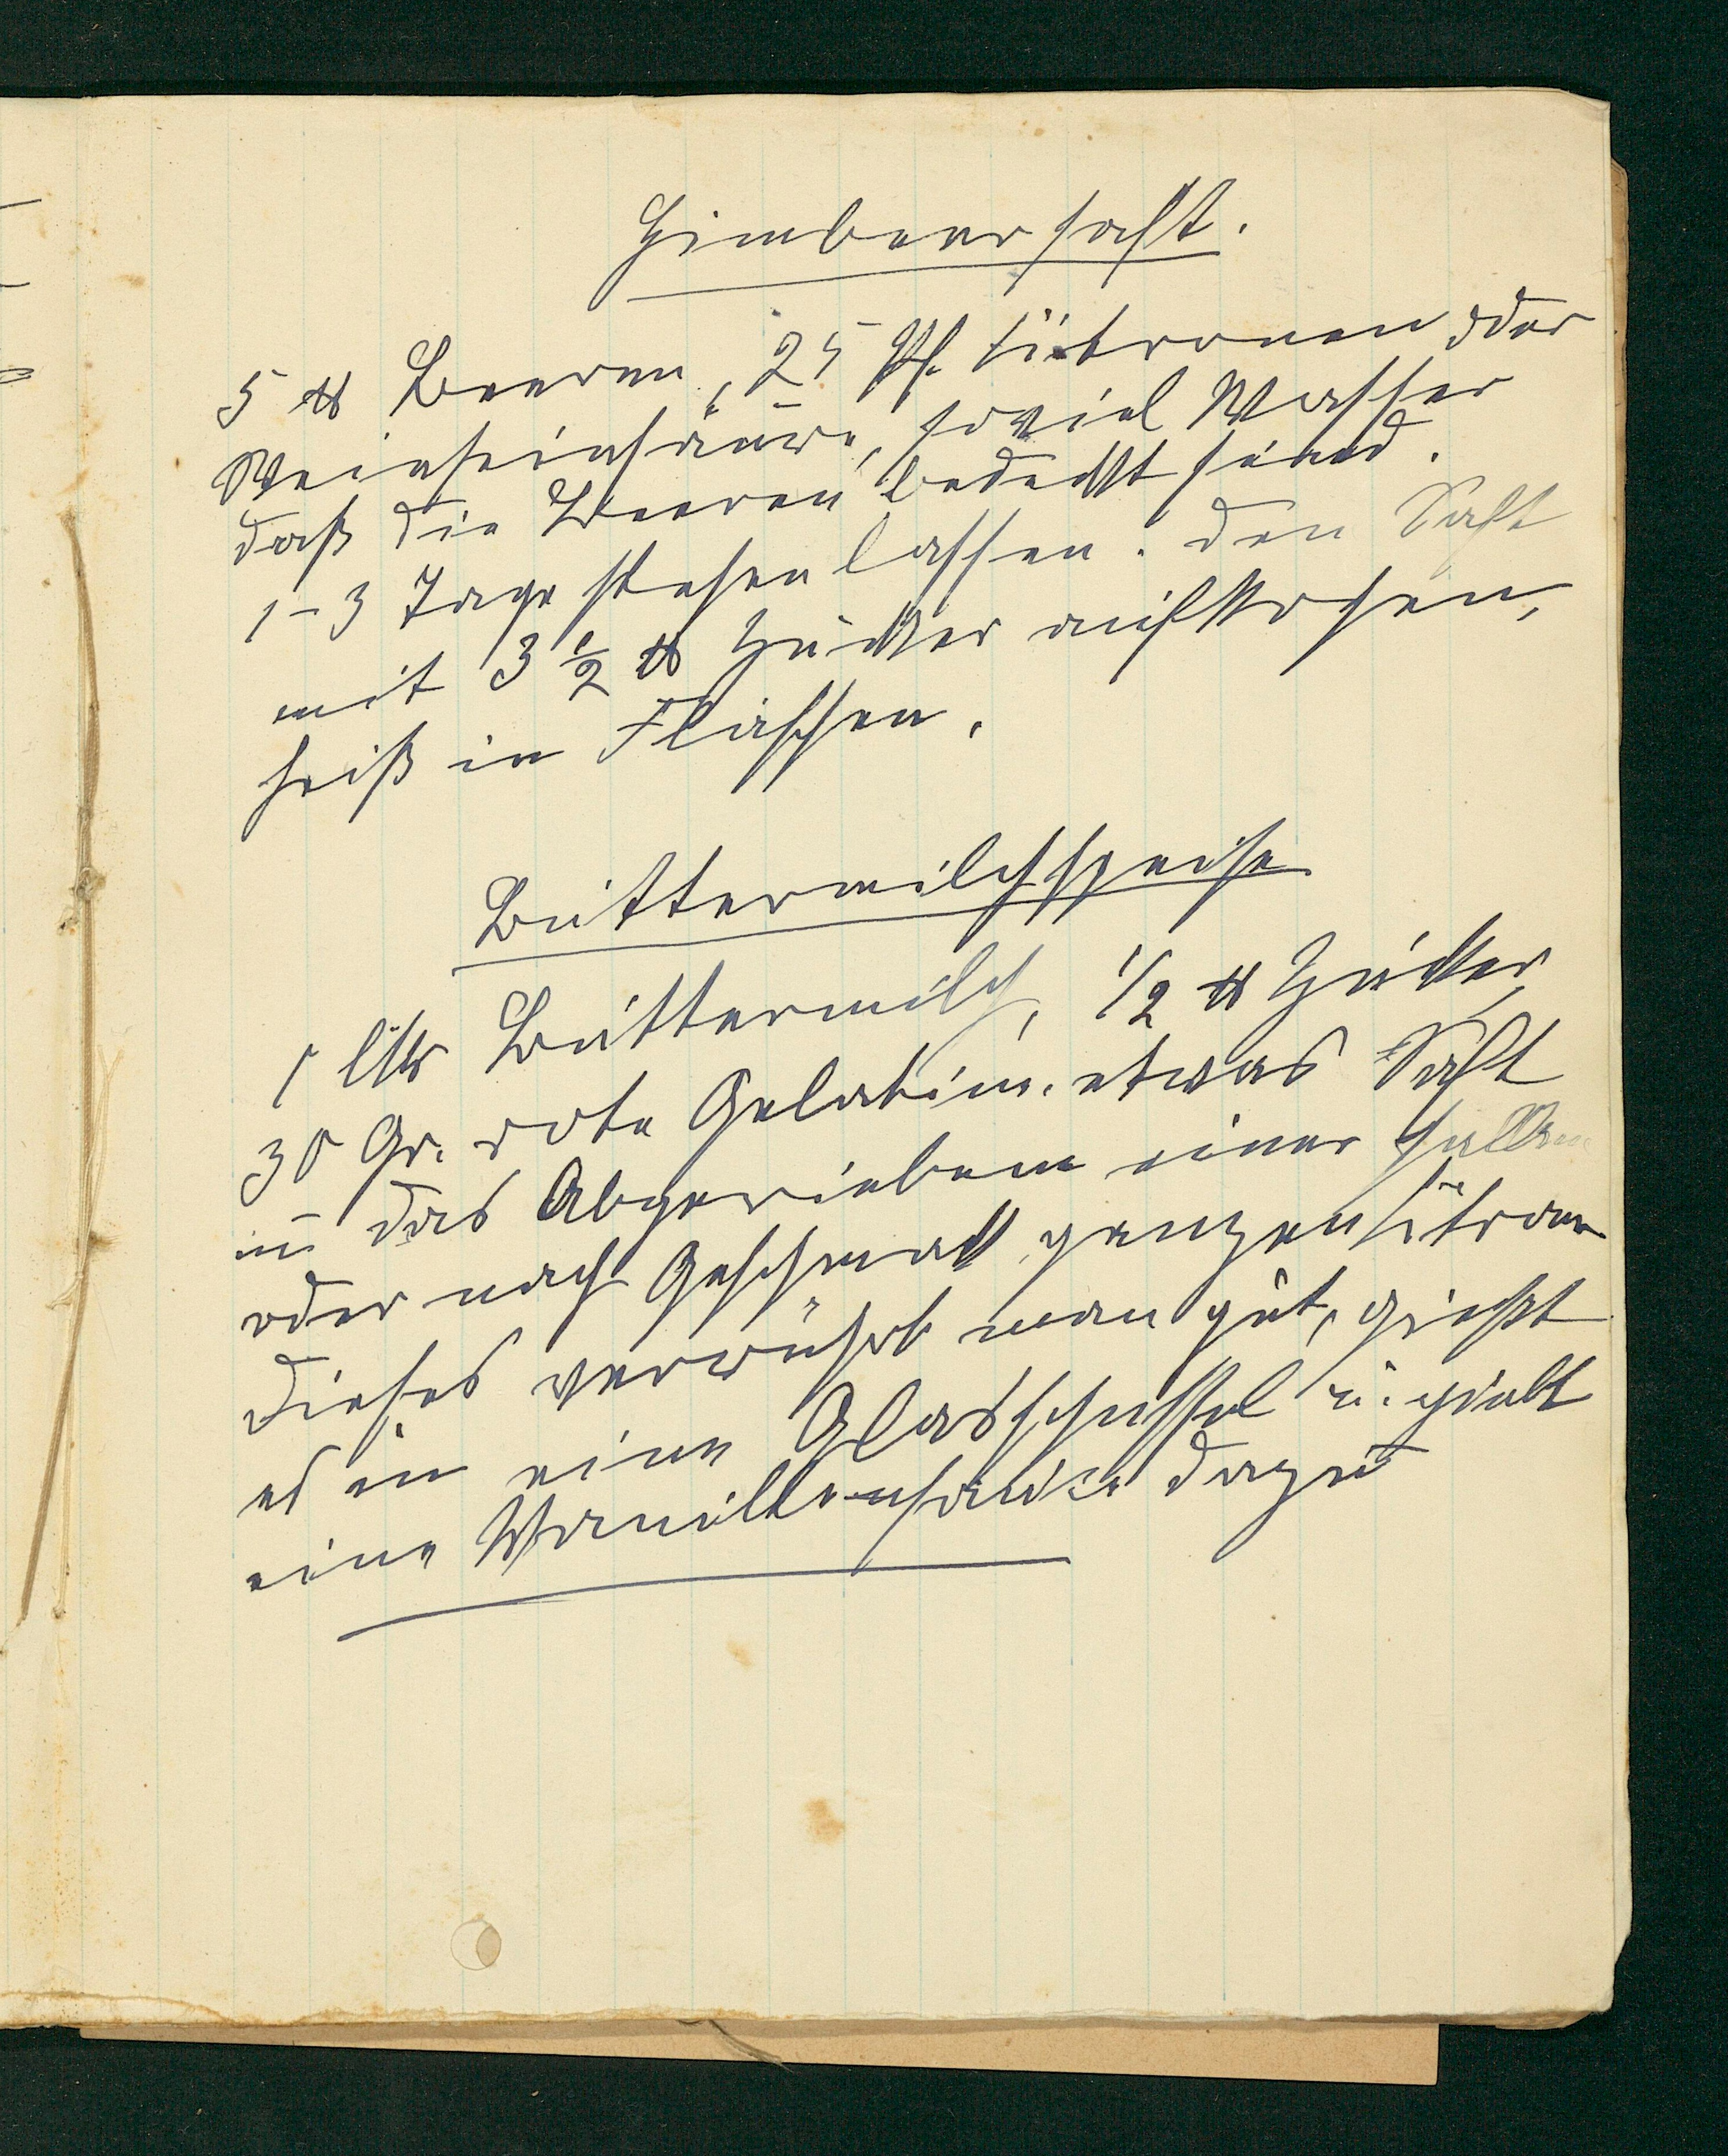 Himbeersaft.
5 ℔ Beeren, 25 Pf. Citronen oder
Weinsteinsäure, soviel Wasser
daß die Beeren bedeckt sind.
1-3 Tage stehen lassen. den Saft
mit 3 1/2 ℔ Zucker aufkochen,
heiß in Flaschen.
Buttermilchspeise
1 Ltr Buttermilch, 1/2 ℔ Zucker,
30 Gr. rote Gelatine. etwas Saft
u. das Abgeriebene einer halben
oder nach Geschmack ganzen Citrone
Dieses verrührt man gut, gießt
es in eine Glasschüssel u. giebt
eine Vanillensauce dazu